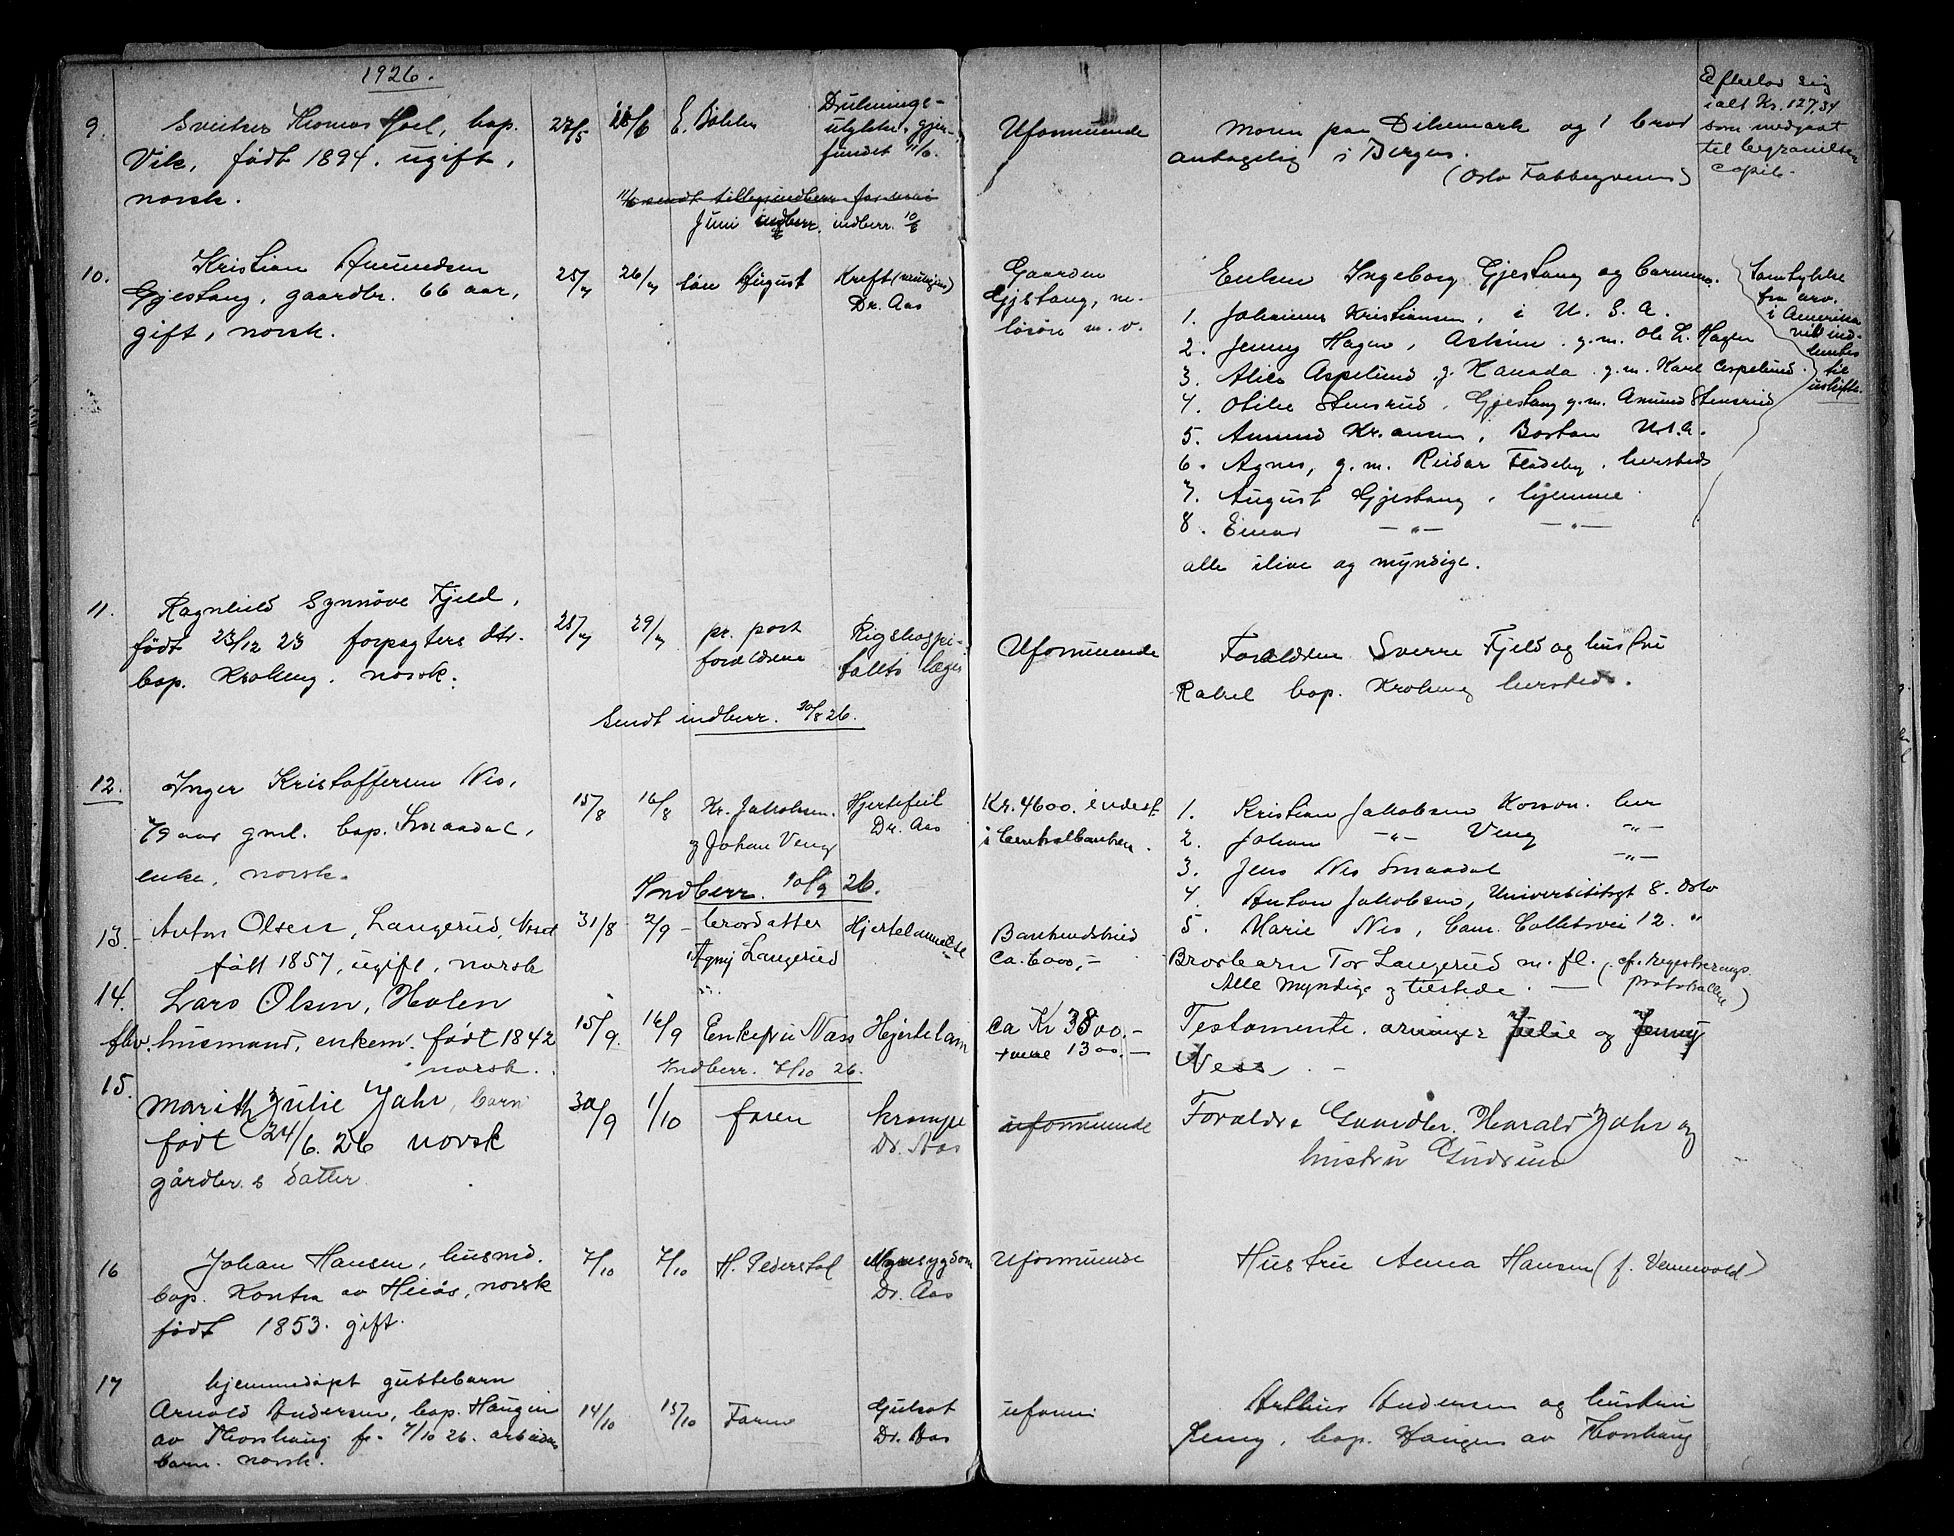 1926.
9. Sveitser Thomas Hoel, bop. 27/5 E. Bøhler Druknings-
Vik, født 1894. ugift, ulykke, gjen-
norsk. fundet 11/6.
Uformuende
Moren paa Dikemark og 1 bror
antagelig i Bergen.
(Oslo Fattigvesen)
Efterlod sig
ialt Kr. 127,34
som medgaat
til begravelsen
Juni indberr. indberr. 10/6
10. Kristian Amundsen 25/7 26/7 søn August Kreft
Gjestang, gaardbr. 66 aar, Dr. Aas
gift, norsk.
Gaarden
Gjestang, m.
løsøre m. v.
Enken Ingeborg Gjestang og barnene.
1. Johannes Kristiansen, i U. S. A.
2. Jenny Hagen, Askim. g.m. Ole L. Hagen
3. Alice Aspelund, Kanada g.m. Karl Aspelund.
4. Otilie Stensrud, Gjestang g.m. Amund Stensrud
5. Amund Kr.ansen, Boston U.S.A.
6. Agnes, g. m. Reidar Fladeby, hersteds
7. August Gjestang, hjemme.
8. Einar —"— —"—
alle ilive og myndige.
Samtykke
fra arv.
i Amerika
vil ind-
hentes
til
uskifte.
11. Ragnhild Synnøve Fjeld, 28/7 29/7 pr. post Rigshospi-
født 23/12 23 forpagters dtr. forældrene talets læge
bop. Krokeng. norsk.
Uformuende
Forældrene Sverre Fjeld og hustru
Rakel bop. Krokeng hersteds.
Sendt indberr. 20/8 26.
12. Inger Kristoffersen Nes, 15/8 16/8 Kr. Jakobsen. Hjertefeil
79 aar gml. bop. Smaadal, og Johan Veng Dr. Aas
enke, norsk.
Kr. 4600. indest.
i Centralbanken.
1. Kristian Jakobsen her
2. Johan —"— Veng —"—
3. Jens Nes Smaadal —"—
4. Anton Jakobsen, Universitetsgt 8. Oslo
5. Marie Nes, Cam. Colletsvei 12. "
Indberr. 10/9 26.
13. Anton Olsen, Langerud, 31/8 2/9 brordatter Hjertelammelse
født 1857, ugift, norsk Agny Langerud
Bankindskud
ca. 6000,-
Brorbarn Tor Langerud m. fl. (cf. registrerings-
Alle myndige og tilstede. — protokollen)
14. Lars Olsen, Holen 15/9. 16/9 Enkefru Næss Hjertelam
fhv. husmand, enkem. født 1842
norsk. Indberr. 7/10 26.
ca Kr 3800.-
1300.—
Testamente. arvinger Julie og Jenny
Ness. -
15. Marith Julie Jahr, barn 30/9 1/10 faren krampe
født 24/6. 26 norsk Dr. Aas
gårdbr.s datter.
uformuende
Foreldre Gaardbr. Harald Jahr og
hustru Gudrun
16 Johan Hansen, husmd. 7/10 7/10 H. Pederstad Dr. Aas
bop. Kontra av Heiås, norsk
født 1853. gift.
Uformuende
Hustru Anna Hansen (f. Vennevold)
17 hjemmedøpt guttebarn
Arnold Andersen, bop. Haugen 14/10 15/10 Faren Gulsot
av Thorshaug f. 7/10 26. arbeider Dr. Aas
barn. norsk.
uformu
Arthur Andersen og hustru
Jenny, bop. Haugen av Thorshaug